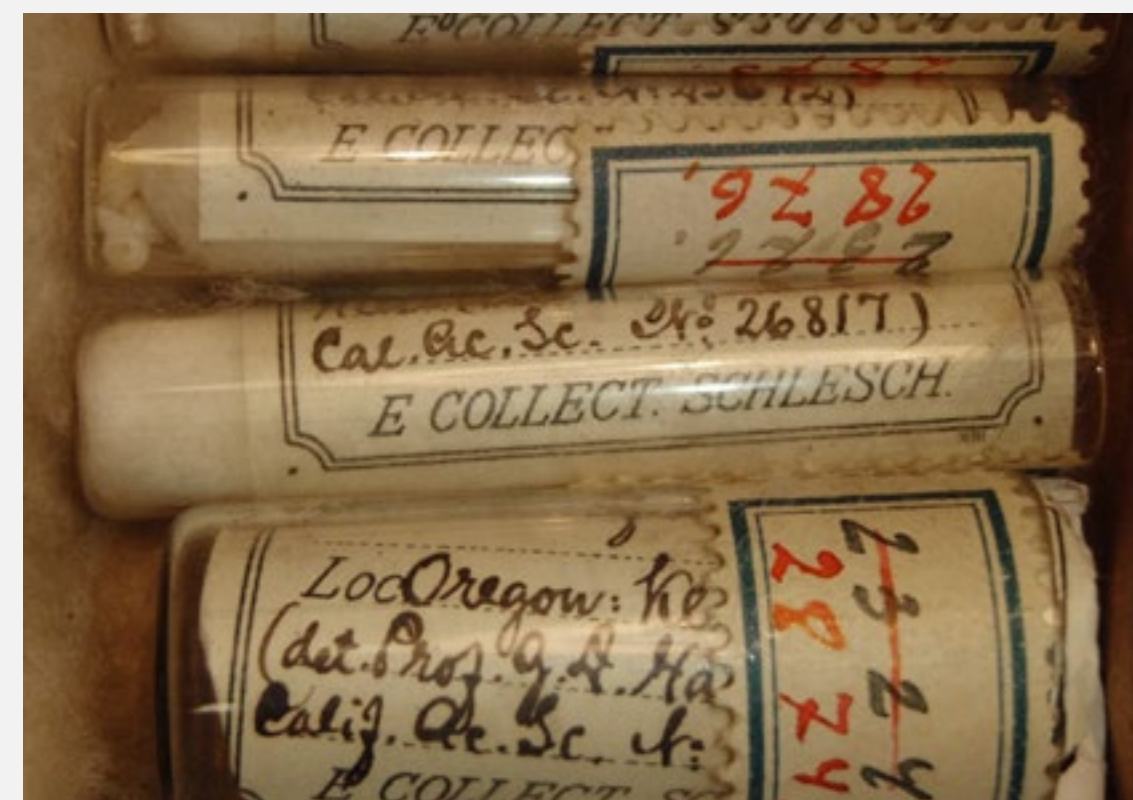 E COLLECT. SCHLESCH
E COLLEC
2876.
Cal. Ac. Sc. No: 26817)
E COLLECT. SCHLESCH.
Loc Oregon: Ke
(det. Prof. G. D. Ha
Calif. Ac. Sc. N:
E COLLECT. SC
2324
2874